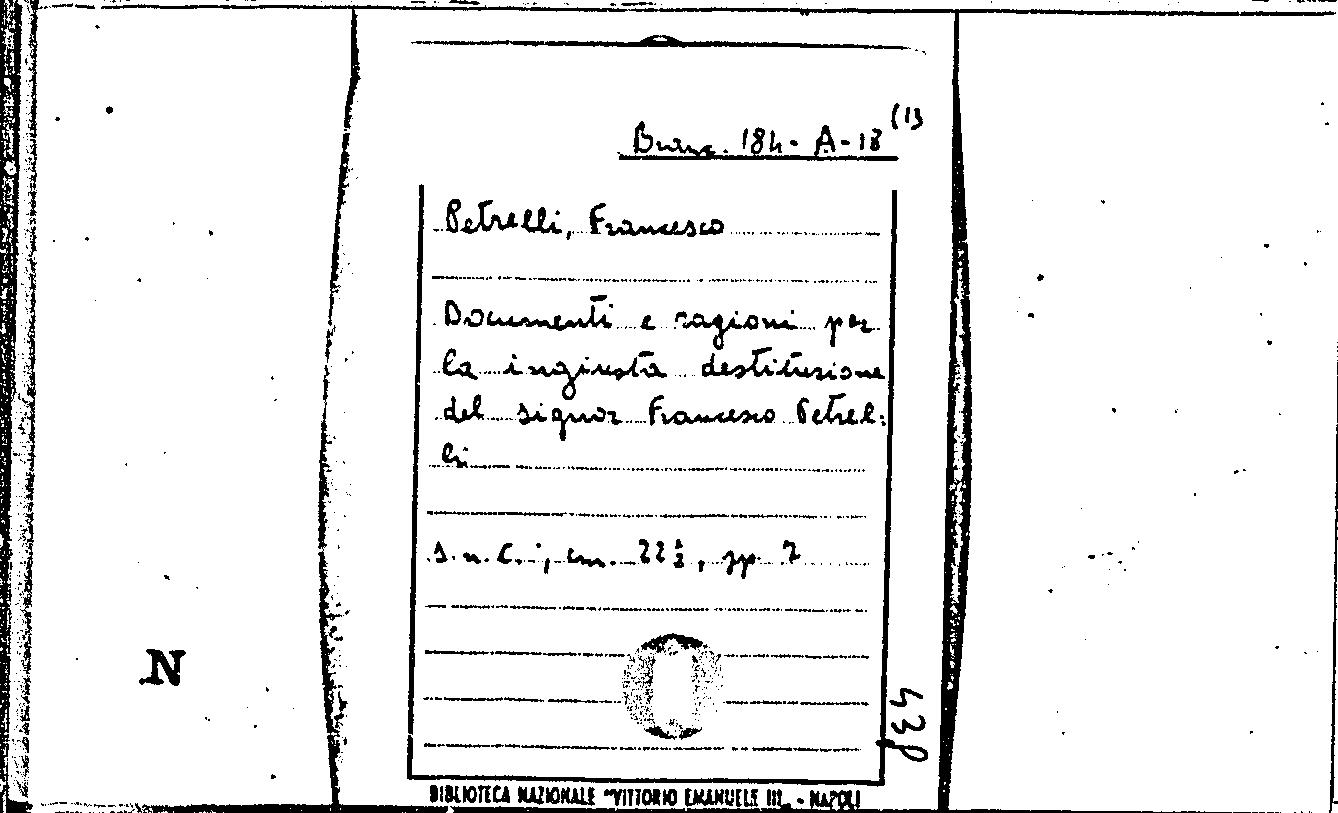 Branc. 184-A-18 (1)
Petrelli, Francesco
Documenti e ragioni per
la ingiusta destituzione
del signor Francesco Petrel:
li
s.n.t.; cm. 22½, pp. 7
438
N
BIBLIOTECA NAZIONALE "VITTORIO EMANUELE III„ - NAPOLI